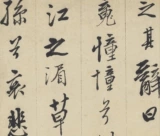 之其辭曰
甍憧憧兮
江之湄草
孫兮哀悲